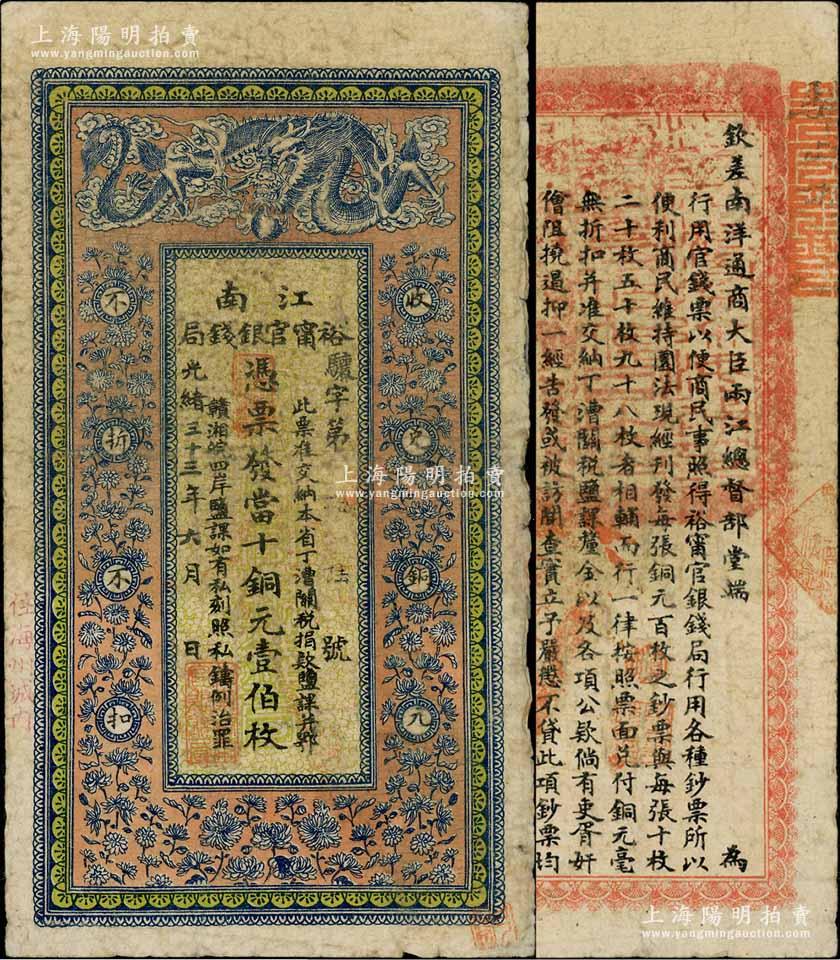 上海陽明拍賣
www.yangmingauction.com
江南
裕甯官銀錢局
驥字第
號
此票准交納本省丁漕關稅捐款鹽課并鄂
憑票發當十銅元壹佰枚
贛湘皖四岸鹽課如有私刻照私鑄例治罪
光緒三十三年六月
日
收兌銅元
不折不扣
上海陽明拍賣
www.yangmingauction.com
住海州城內
欽差南洋通商大臣兩江總督部堂端
為
行用官錢票以便商民事照得裕甯官銀錢局行用各種鈔票所以
便利商民維持圜法現經刊發每張銅元百枚之鈔票與每張十枚
二十枚五十枚九十八枚者相輔而行一律按照票面兌付銅元毫
無折扣并准交納丁漕關稅鹽課釐金以及各項公欵倘有吏胥奸
僧阻撓遏抑一經告發或被訪聞查實立予嚴懲不貸此項鈔票均
上海陽明拍賣
www.yangmingauction.com